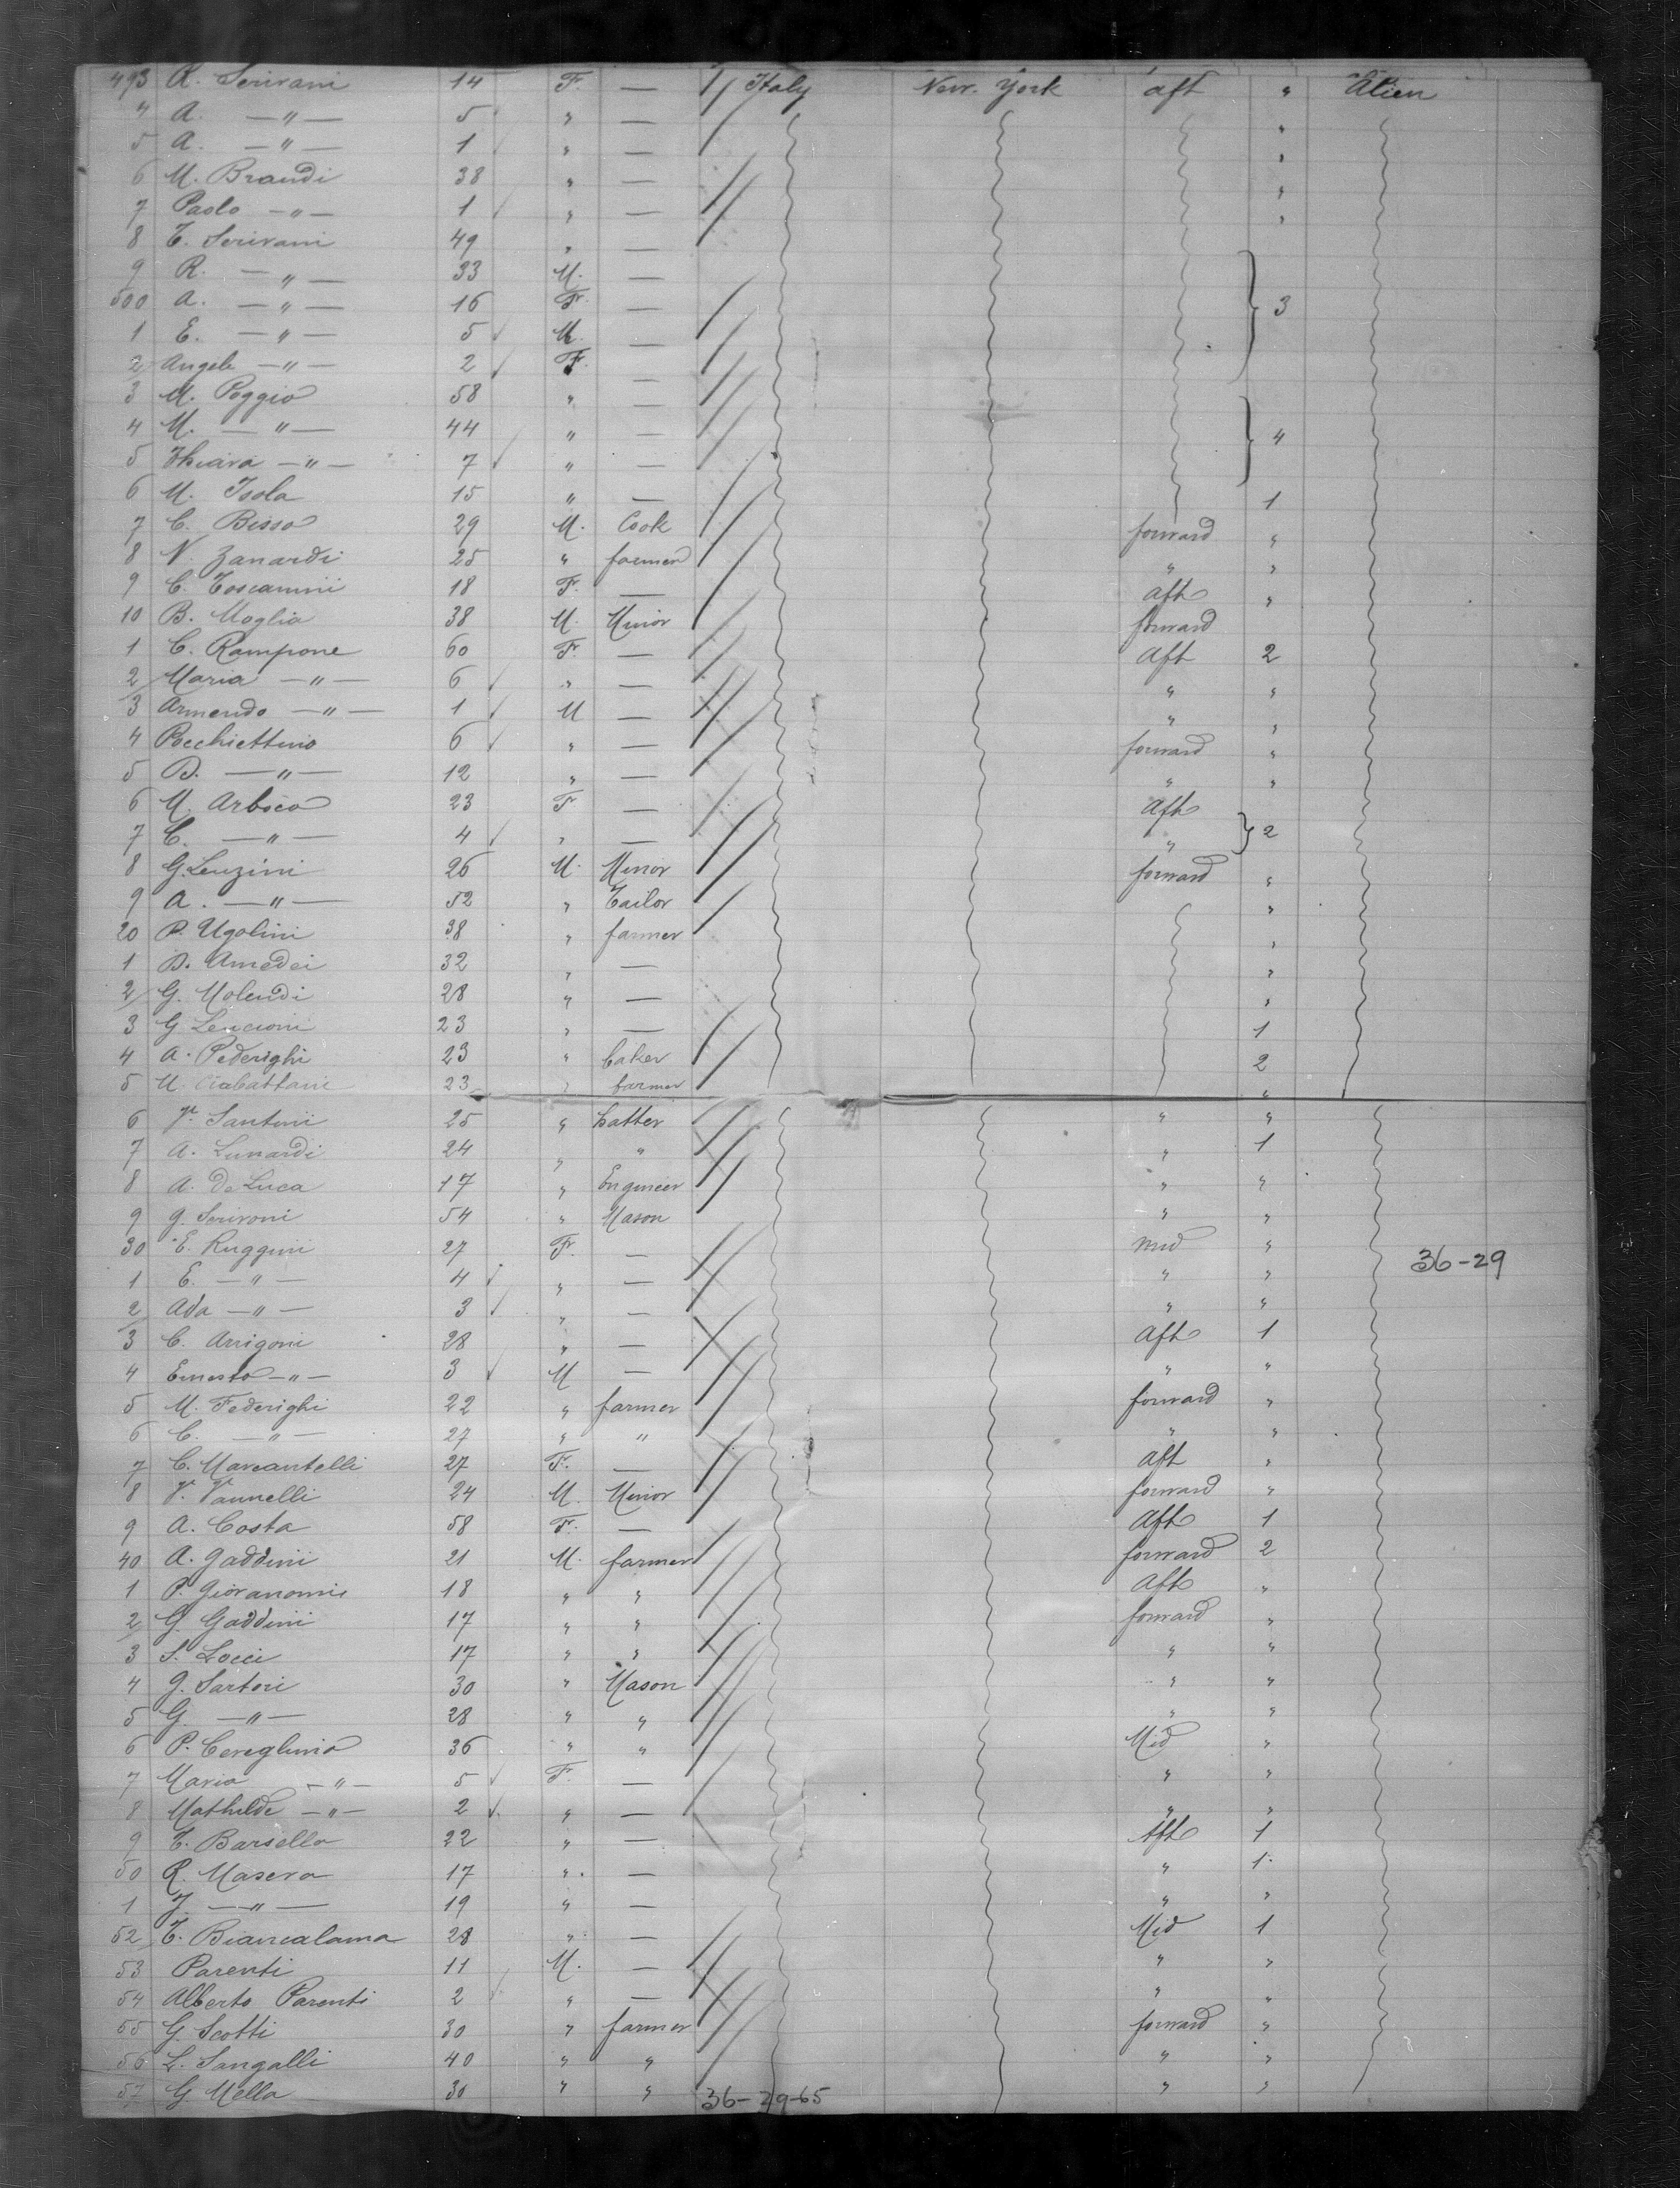 493 R. Scrivani 14 F. — Italy New. York aft " Alien
4 A. —"— 5 " — "
5 A. —"— 1 " — "
6 M. Brandi 38 " — "
7 Paolo —"— 1 " — "
8 T. Scrivani 49 " —
9 R. —"— 33 M. —
500 A. —"— 16 Fr. — 3
1 E. —"— 5 M. —
2 Angele —"— 2 F. —
3 M. Poggio 58 " —
4 M. —"— 44 " — 4
5 —"— 7 " —
6 M. Isola 15 " — 1
7 C. Bisso 29 M. Cook forward "
8 N. Zanardi 25 " farmer " "
9 C. Toscanini 18 F. — aft "
10 B. Moglia 38 M. Minor forward
1 C. Rampone 60 F. — Aft 2
2 Maria —"— 6 " — " "
3 Armendo —"— 1 M — " "
4 Pocchiettino 6 " — forward "
5 D. —"— 12 " — " "
6 M. Arboco 23 F — Aft
7 C. —"— 4 " — " 2
8 G. Lenzini 26 M. Minor forward "
9 A. —"— 52 " Tailor "
20 P. Ugolini 38 " farmer "
1 D. Amedei 32 " — "
2 G. Molendi 28 " — "
3 G. Lencioni 23 " — 1
4 A. Pederighi 23 " baker 2
5 M. Ciabattani 23 " farmer "
6 V. Santini 25 " hatter " "
7 A. Lunardi 24 " " " 1
8 A. De Luca 17 " Engineer " "
9 G. Scrivoni 54 " Mason " "
30 E. Ruggini 27 F. — mid " 36-29
1 E. —"— 4 " — " "
2 Ada —"— 3 " — " "
3 C. Arrigoni 28 " — Aft 1
4 Ernesto —"— 3 M — " "
5 M. Federighi 22 " farmer forward "
6 C. —"— 27 " " " "
7 C. Marcantelli 27 F. — Aft "
8 V. Vannelli 24 M. Minor forward "
9 A. Costa 58 F. — Aft 1
40 A. Gaddini 21 M. farmer forward 2
1 P. Giovanonni 18 " " Aft "
2 G. Gaddini 17 " " forward "
3 S. Locci 17 " " " "
4 G. Sartori 30 " Mason " "
5 G. —"— 28 " " " "
6 P. Cereghino 36 " " Mid "
7 Maria —"— 5 F. — " "
8 Mathilde —"— 2 " — " "
9 T. Barsella 22 " — Aft 1
50 R. Masera 17 " — " 1
1 J. —"— 19 " — " "
52 T. Biancalama 28 " — Mid 1
53 Parenti 11 M. — " "
54 Alberto Parenti 2 " — " "
55 G. Scotti 30 " farmer forward "
56 L. Sangalli 40 " " " "
57 G. Mella 30 " " " "
36-29-65